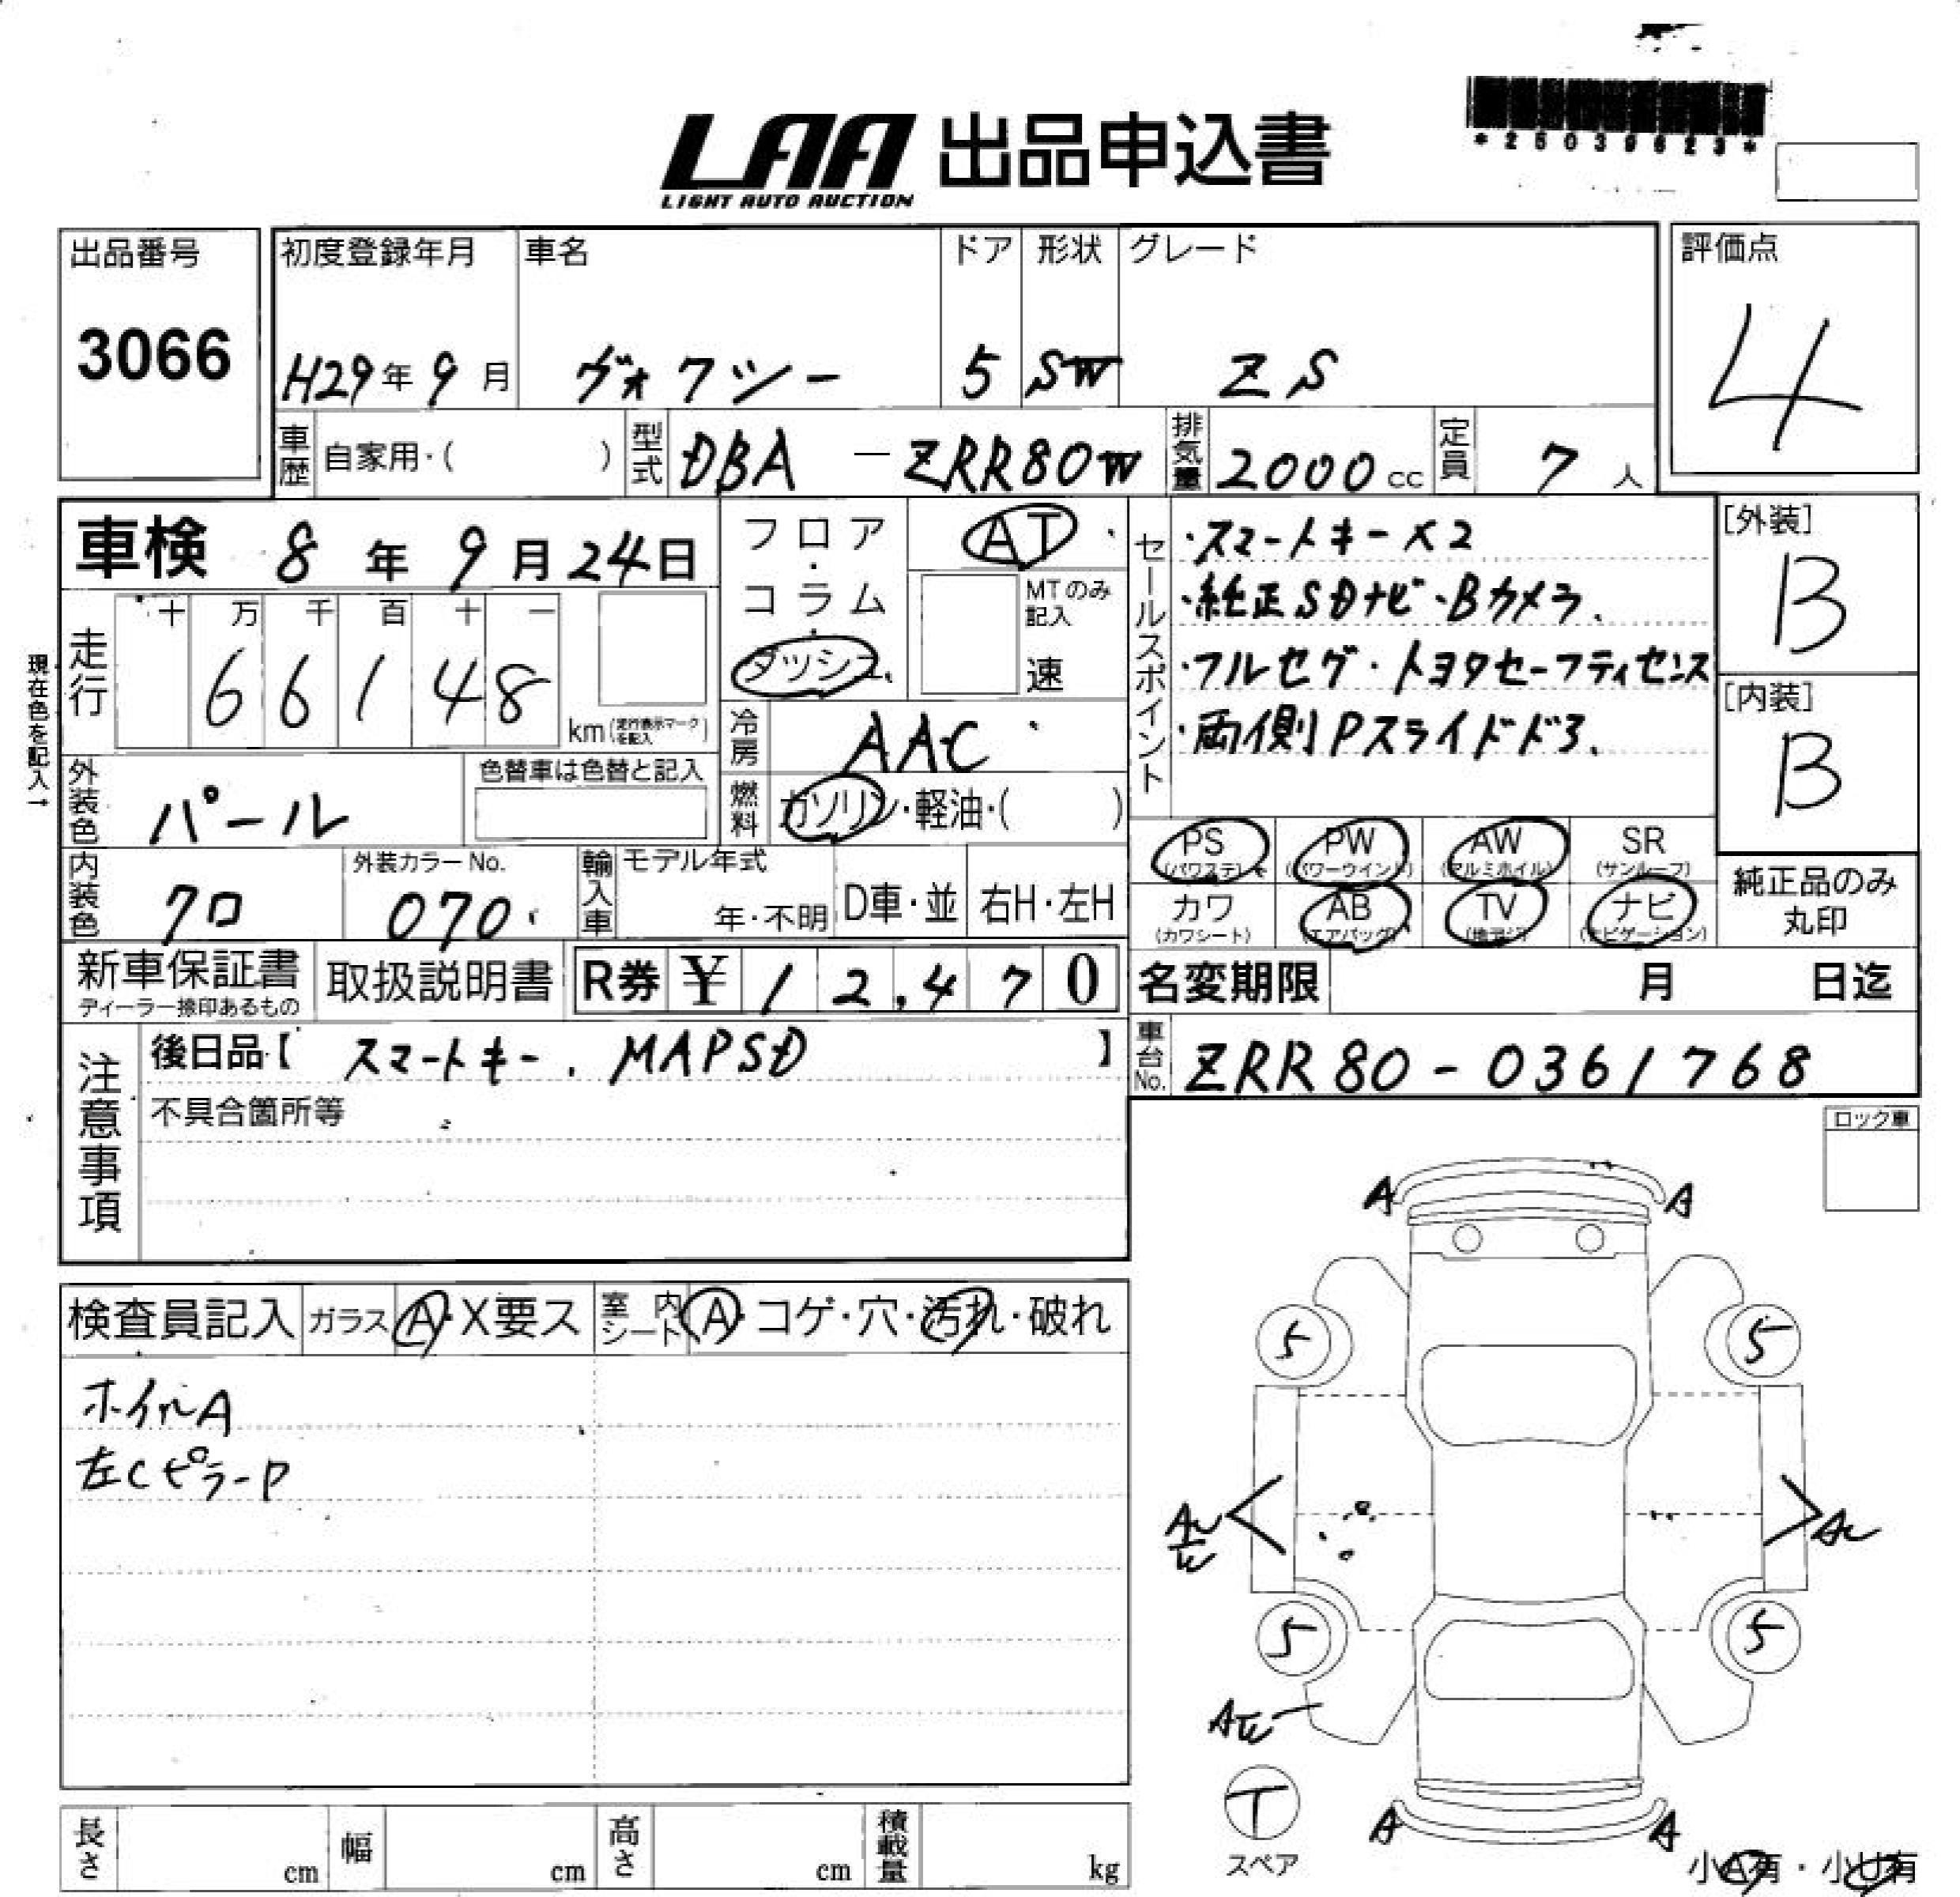 LAA 出品申込書
LIGHT AUTO AUCTION
*25039623*
出品番号
3066
初度登録年月
H29年9月
車名
ヴォクシー
ドア
5
形状
SW
グレード
ZS
評価点
4
車歴 自家用・( )
型式 DBA — ZRR80W
排気量 2000 cc
定員 7 人
車検 8年9月24日
フロア・コラム・ダッシュ
AT
MTのみ記入
速
現在色を記入→
走行 十 万 千 百 十 一
66148
km(走行表示マークを記入)
冷房 AAC
燃料 ガソリン・軽油・( )
外装色 パール
色替車は色替と記入
内装色 クロ
外装カラーNo.
070
輸入車 モデル年式
年・不明 D車・並 右H・左H
セールスポイント
・スマートキー×2
・純正SDナビ・Bカメラ、
・フルセグ・トヨタセーフティセンス
・両側Pスライドドア、
[外装]
B
[内装]
B
PS (パワステ) PW (パワーウインド) AW (アルミホイル) SR (サンルーフ)
カワ (カワシート) AB (エアバッグ) TV (地デジ) ナビ (ナビゲーション)
純正品のみ丸印
新車保証書
ディーラー捺印あるもの
取扱説明書
R券 ¥12,470
名変期限 月 日迄
注意事項
後日品【 スマートキー、MAPSD 】
不具合箇所等
車台No. ZRR80-0361768
ロック車
検査員記入 ガラス A・X要ス 室内シート A・コゲ・穴・汚れ・破れ
ホイルA
左CピラーP
A A
5 5
5 5
A A
T
スペア
小A有・小U有
長さ cm 幅 cm 高さ cm 積載量 kg